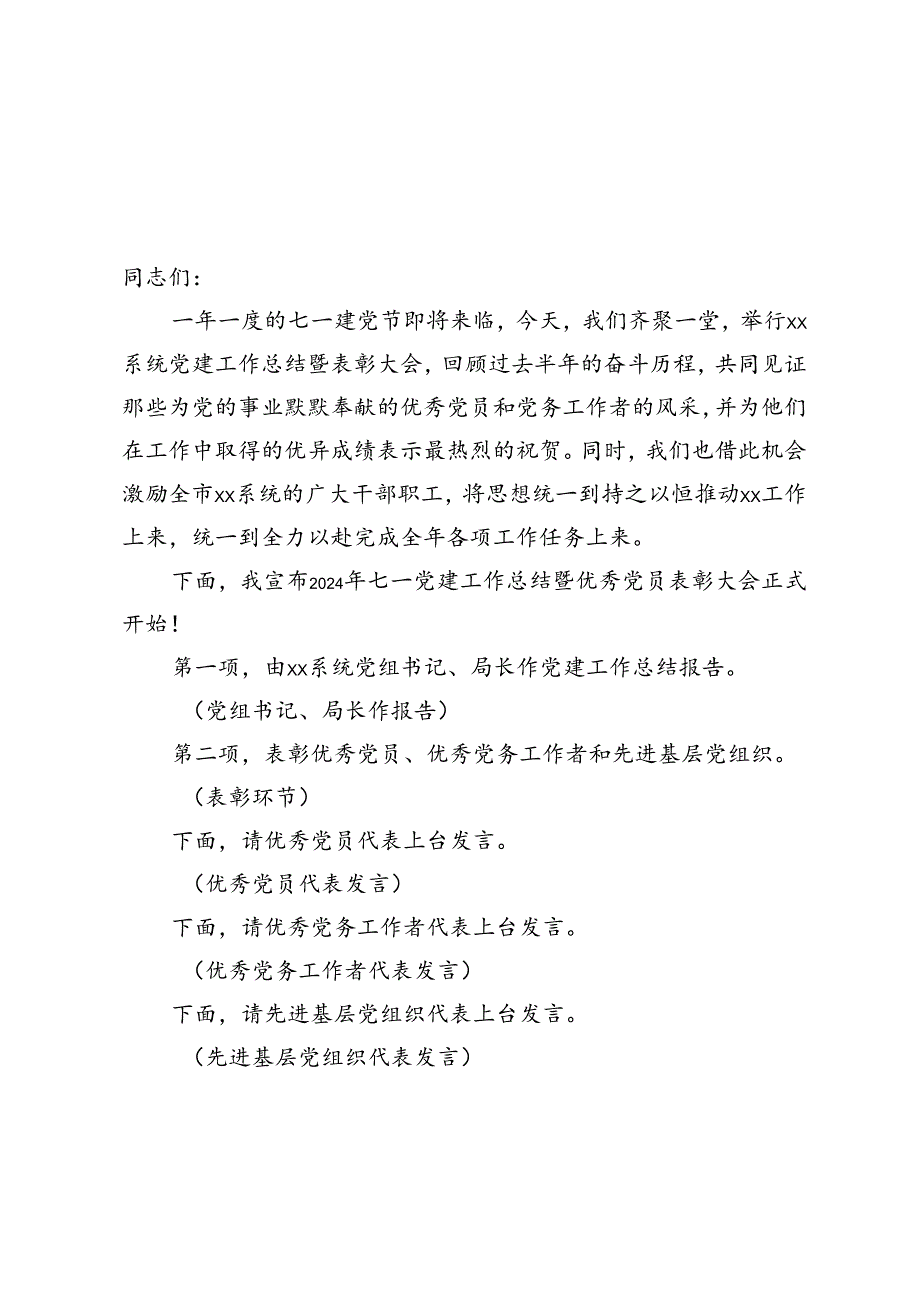 同志们：
一年一度的七一建党节即将来临，今天，我们齐聚一堂，举行xx
系统党建工作总结暨表彰大会，回顾过去半年的奋斗历程，共同见证
那些为党的事业默默奉献的优秀党员和党务工作者的风采，并为他们
在工作中取得的优异成绩表示最热烈的祝贺。同时，我们也借此机会
激励全市xx系统的广大干部职工，将思想统一到持之以恒推动xx工作
上来，统一到全力以赴完成全年各项工作任务上来。
下面，我宣布2024年七一党建工作总结暨优秀党员表彰大会正式
开始！
第一项，由xx系统党组书记、局长作党建工作总结报告。
（党组书记、局长作报告）
第二项，表彰优秀党员、优秀党务工作者和先进基层党组织。
（表彰环节）
下面，请优秀党员代表上台发言。
（优秀党员代表发言）
下面，请优秀党务工作者代表上台发言。
（优秀党务工作者代表发言）
下面，请先进基层党组织代表上台发言。
（先进基层党组织代表发言）